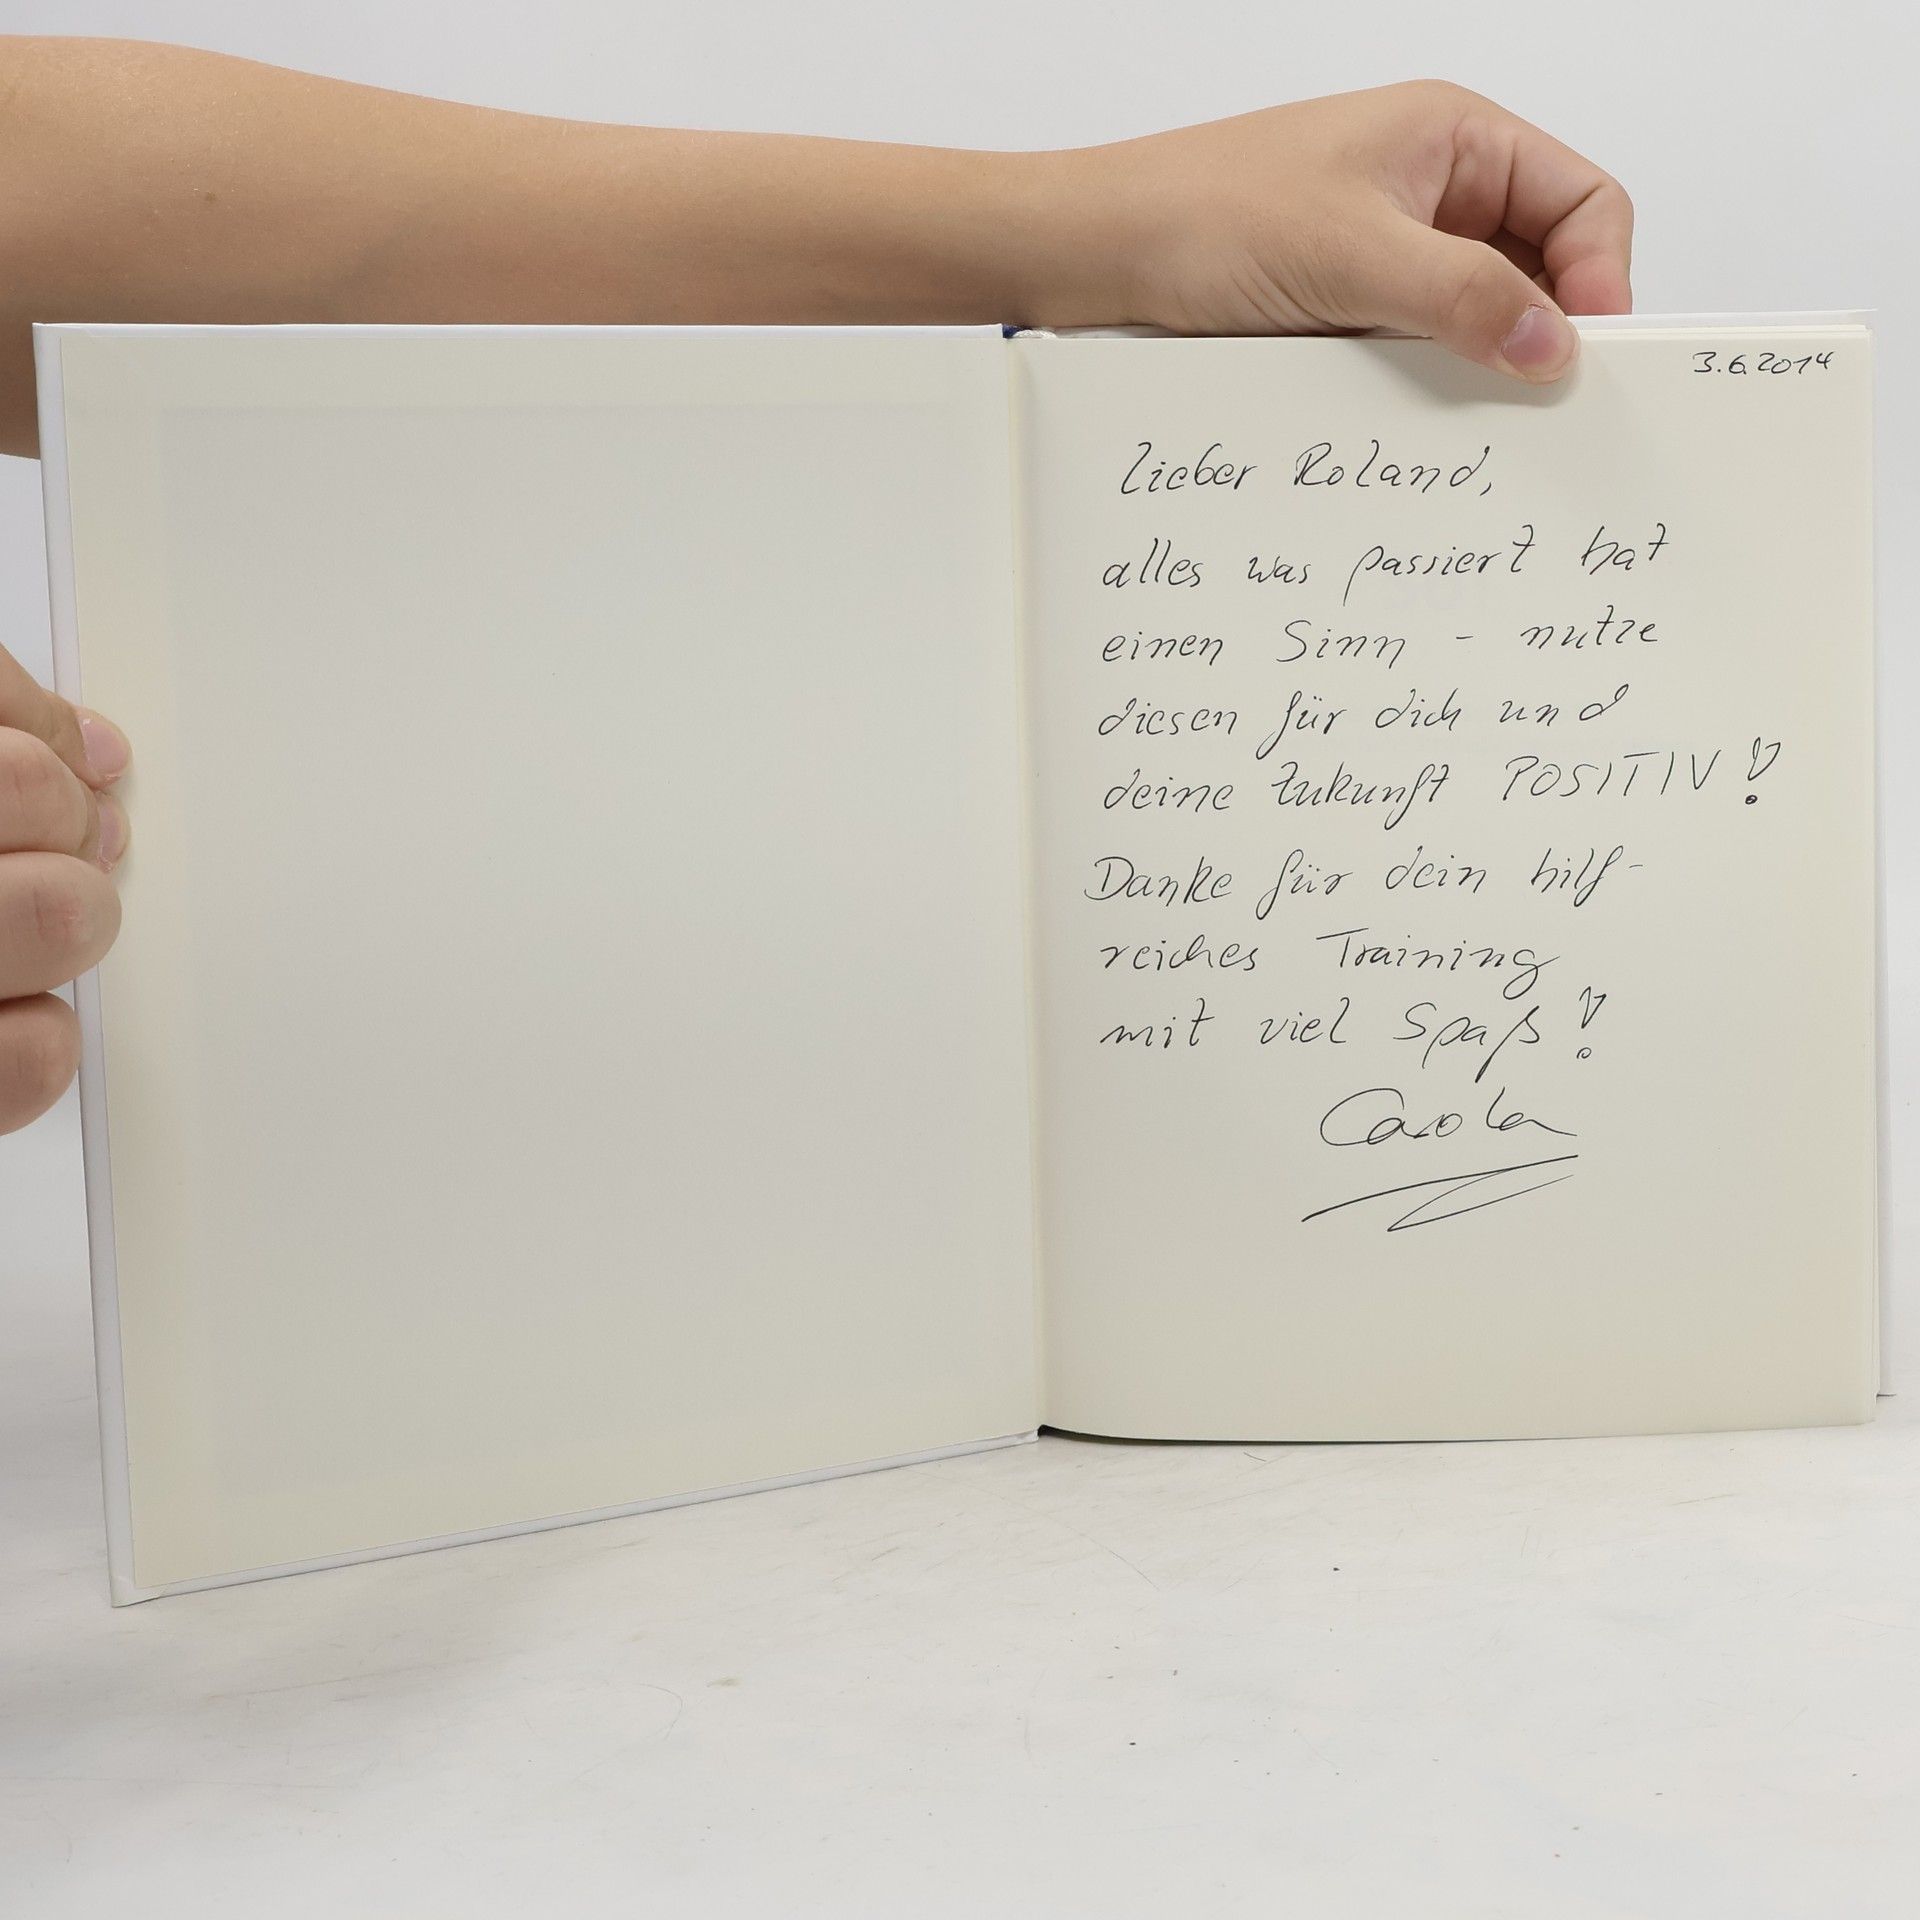 3.6.2014
Lieber Roland,
alles was passiert hat
einen Sinn - nutze
diesen für dich und
deine Zukunft POSITIV!
Danke für dein hilf-
reiches Training
mit viel Spaß!
Carola